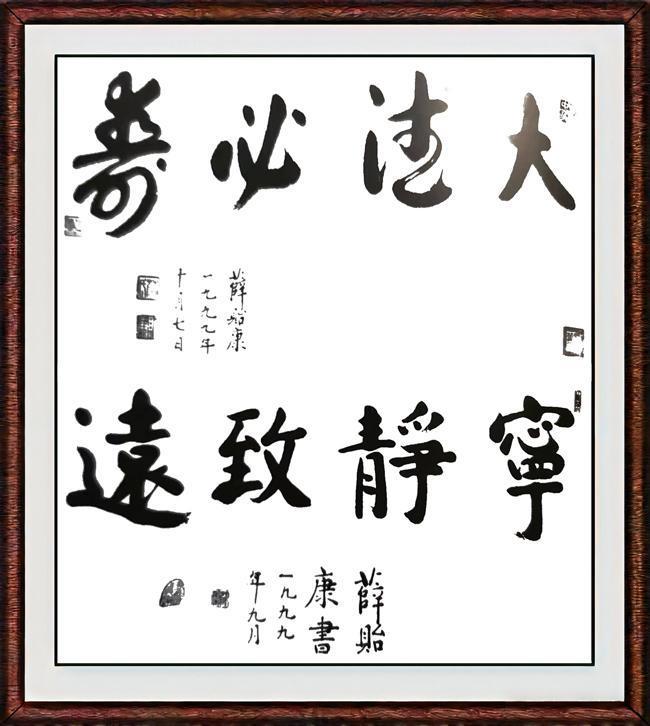 大德必壽
薛貽康
一九九九年
十月七日
寧靜致遠
薛貽
康書
一九九九
年九月